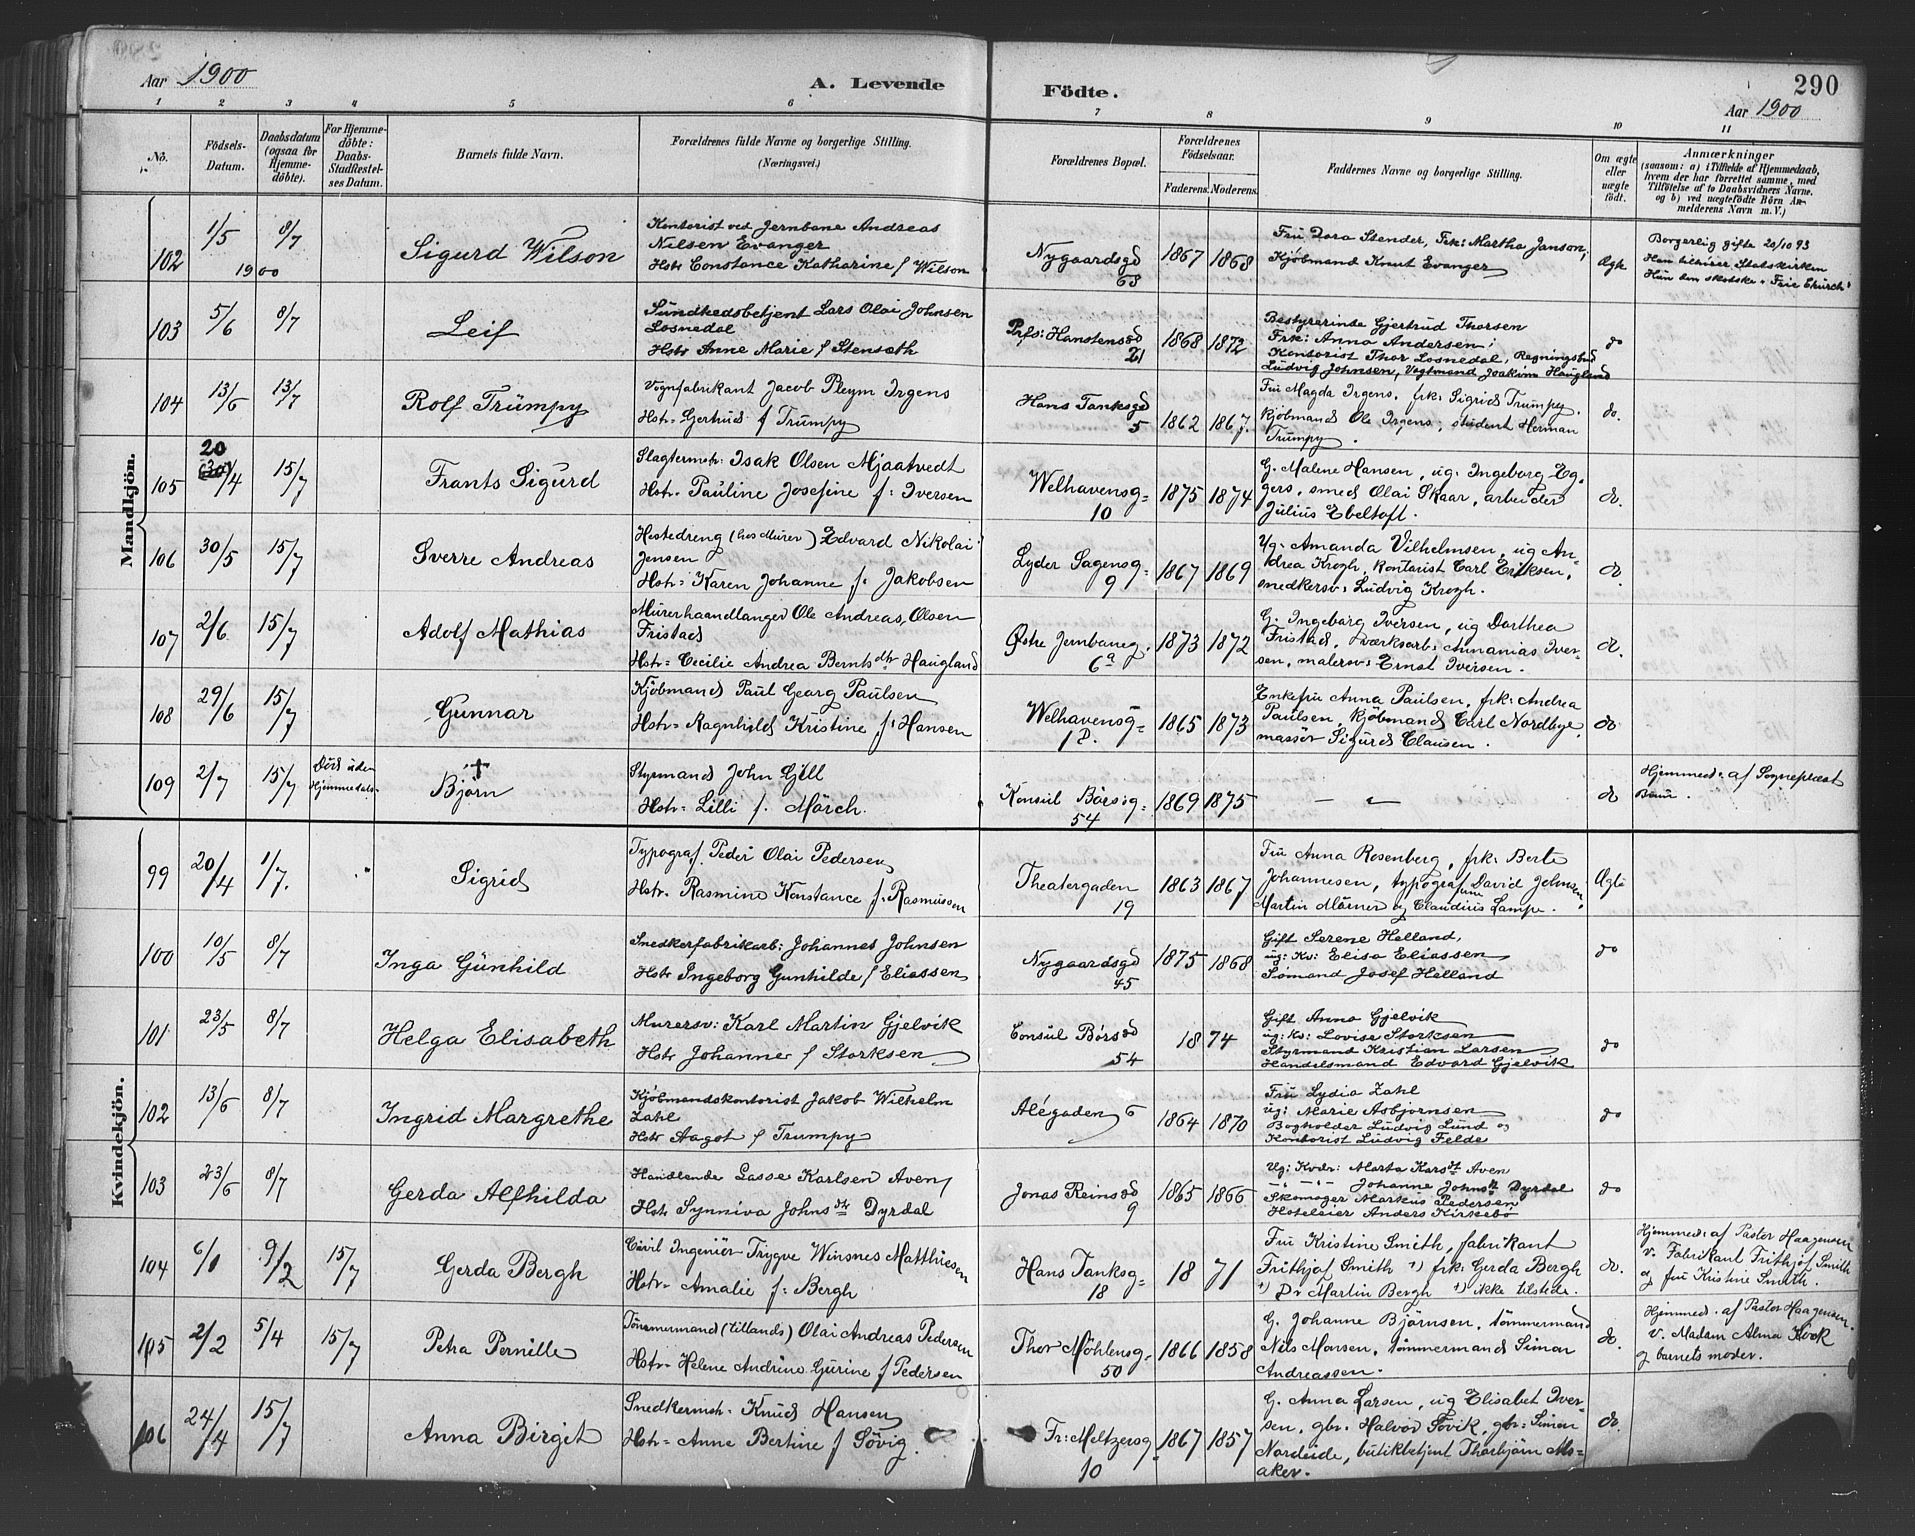 Aar 1900
A. Levende
Födte.
290
Aar 1900
1 2 3 4 5 6 7 8 9 10 11
No.
Födsels-
Datum.
Daabsdatum
(ogsaa for
Hjemme-
döbte).
For Hjemme-
döbte:
Daabs-
Stadfæstel-
ses Datum.
Barnets fulde Navn.
Forældrenes fulde Navne og borgerlige Stilling.
(Næringsvei.)
Forældrenes Bopæl.
Forældrenes
Födselsaar.
Faderens. Moderens.
Faddernes Navne og borgerlige Stilling.
Om ægte
eller
uægte
födt.
Anmærkninger
(saasom: a) i Tilfælde af Hjemmedaab,
hvem der har forrettet samme, med
Tilföielse af to Daabsvidners Navne.
og b) ved uægtefödte Börn An-
melderens Navn m. V.)
Mandkjön.
102 1/5 1900 8/7 Sigurd Wilson
Kontorist ved Jernbane Andreas
Nilsen Evanger
Hstr Constance Katharine f Wilson
Nygaardsgd
68
1867 1868
Fru Dora Stender, Frk: Martha Janson,
Kjöbmand Knut Evanger
Ægte
Borgerlig gifte 20/10 93
Han tilhörer Statskirken
Hun den skotske "Frie Church"
103 5/6 8/7 Leif
Sundhedsbetjent Lars Olai Johnsen
Losnedal
Hstr Anne Marie f Stensæth
Prfs: Hanstensgd
21
1868 1872
Bestyrerinde Gjertrud Thorsen
Frk: Anna Andersen;
Kontorist Thor Losnedal, Regningsbud
Ludvig Johnsen, Vegtmand Joakim Haugland
do
104 13/6 13/7 Rolf Trümpy
Vognfabrikant Jacob Pleym Irgens
Hstr- Gertrud f Trümpy
Hans Tanksgd
5
1862 1867.
Fru Magda Irgens, frk: Sigrid Trumpy.
Kjöbmand Ole Irgens, student Herman
Trumpy.
do.
105 20/4 15/7 Frants Sigurd
Slagtermstr: Isak Olsen Mjaatvedt
Hstr- Pauline Josefine f: Iversen
Welhavensg=
10
1875 1874
G. Malene Hansen, ug: Ingeborg Eg-
gers, smed Olai Skaar, arbeider
Julius Ebeltoft.
do.
106 30/5 15/7 Sverre Andreas
Hestedreng (hos Murer) Edvard Nikolai
Jensen
Hstr= Karen Johanne f. Jakobsen
Lyder Sagensg=
9
1867 1869
Ug. Amanda Vilhelmsen, ug An-
drea Krogh, Kontorist Carl Eriksen,
snedkersv: Ludvig Krogh.
do.
107 2/6 15/7 Adolf Mathias
Murerhaandlanger Ole Andreas Olsen
Fristad
Hstr= Cecilie Andrea Berntsdtr Haugland
Östre Jernbaneg.
6a
1873 1872
G. Ingeborg Iversen, ug Dorthea
Fristad, værksarb: Annanias Iver-
sen, malersv: Ernst Iversen.
do.
108 29/6 15/7 Gunnar
Kjöbmand Paul Georg Paulsen
Hstr= Ragnhild Kristine f: Hansen
Welhavensg=
1D.
1865 1873
Enkefru Anna Paulsen, frk: Andrea
Paulsen, Kjöbmand Carl Nordbye,
massör Sigurd Clausen.
do.
109 2/7 15/7 Död uden
Hjemmedaab
†
Björn
Styrmand John Gjell
Hstr= Lilli f. Mörch.
Konsul Börsg=
54
1869 1875
— " —
do
Hjemmed: af Sogneprest
Kvindekjön.
99 20/4 1/7. " Sigrid
Typograf Peder Olai Pedersen
Hstr. Rasmine Konstance f. Rasmussen
Theatergaden
19
1863 1867
Fru Anna Rosenberg, frk: Berte
Johannesen, typograferne David Johnsen,
Martin Mörner og Claudius Lampe.
Ægte
100 10/5 8/7 Inga Gunhild
Snedkerfabrikarb: Johannes Johnsen
Hstr Ingeborg Gunhilde f Eliassen
Nygaardsgd
45
1875 1868
Gift Serene Helland,
ug: Kv: Elisa Eliassen
Sömand Josef Helland
do
101 23/5 8/7 Helga Elisabeth
Murersv: Karl Martin Gjelvik
Hstr Johanne f Storksen
Consul Börsgd
54
1874
Gift Anna Gjelvik
ug: Ks: Lovise Storksen
Styrmand Kristian Larsen
Handelsmand Edvard Gjelvik
do
102 13/6 8/7 Ingrid Margrethe
Kjöbmandskontorist Jakob Wilhelm
Zahl
Hstr Aagot f Trumpy
Alégaden 6
1864 1870
Fru Lydia Zahl
ug: Marie Asbjornsen
Bogholder Ludvig Lund og
Kontorist Ludvig Felde
do
103 23/6 8/7 Gerda Alfhilda
Handlende Lasse Karlsen Aven
Hstr Synniva Johnsdtr Dyrdal
Jonas Reinsgd
9
1865 1866
Ug: Kvdr: Marta Karsdt Aven
-"- -"- Johanne Johnsdt Dyrdal
Skomager Markus Pedersen
Hoteleier Anders Kirkebö
do
104 6/1 9/2 15/7 Gerda Bergh
Civil Ingeniör Trygve Winsnes Matthiesen
Hstr- Amalie f: Bergh
Hans Tanksg=
18
1871
Fru Kristine Smith, fabrikant
Frithjof Smith 1) frk: Gerda Bergh
1) Dr Martin Bergh 1) ikke tilstede.
do.
Hjemmed: af Pastor Haagensen
v. Fabrikant Frithjof Smith
og fru Kristine Smith.
105 2/2 5/4 15/7 Petra Pernille
Tömmermand (tillands) Olai Andreas Pedersen
Hstr- Helene Andrine Gurine f Pedersen
Thor Möhlensg=
50
1866 1858
G. Johanne Björnsen, tömmermand
Nils Monsen, tömmermand Simon
Andreassen.
do.
Hjemmed. af Pastor Haagensen.
v. Madam Alma Kook
og barnets moder.
106 24/4 15/7 Anna Birgit
Snedkermstr- Knud Hansen
Hstr- Anne Bertine f Sövig.
Fr: Meltzersg=
10
1867 1857
G. Anna Larsen, ug Elisabet Iver-
sen, gbr. Halvor Sövik, gbr= Simon
Nordeide, butikbetjent Thorbjörn As-
aker.
do.